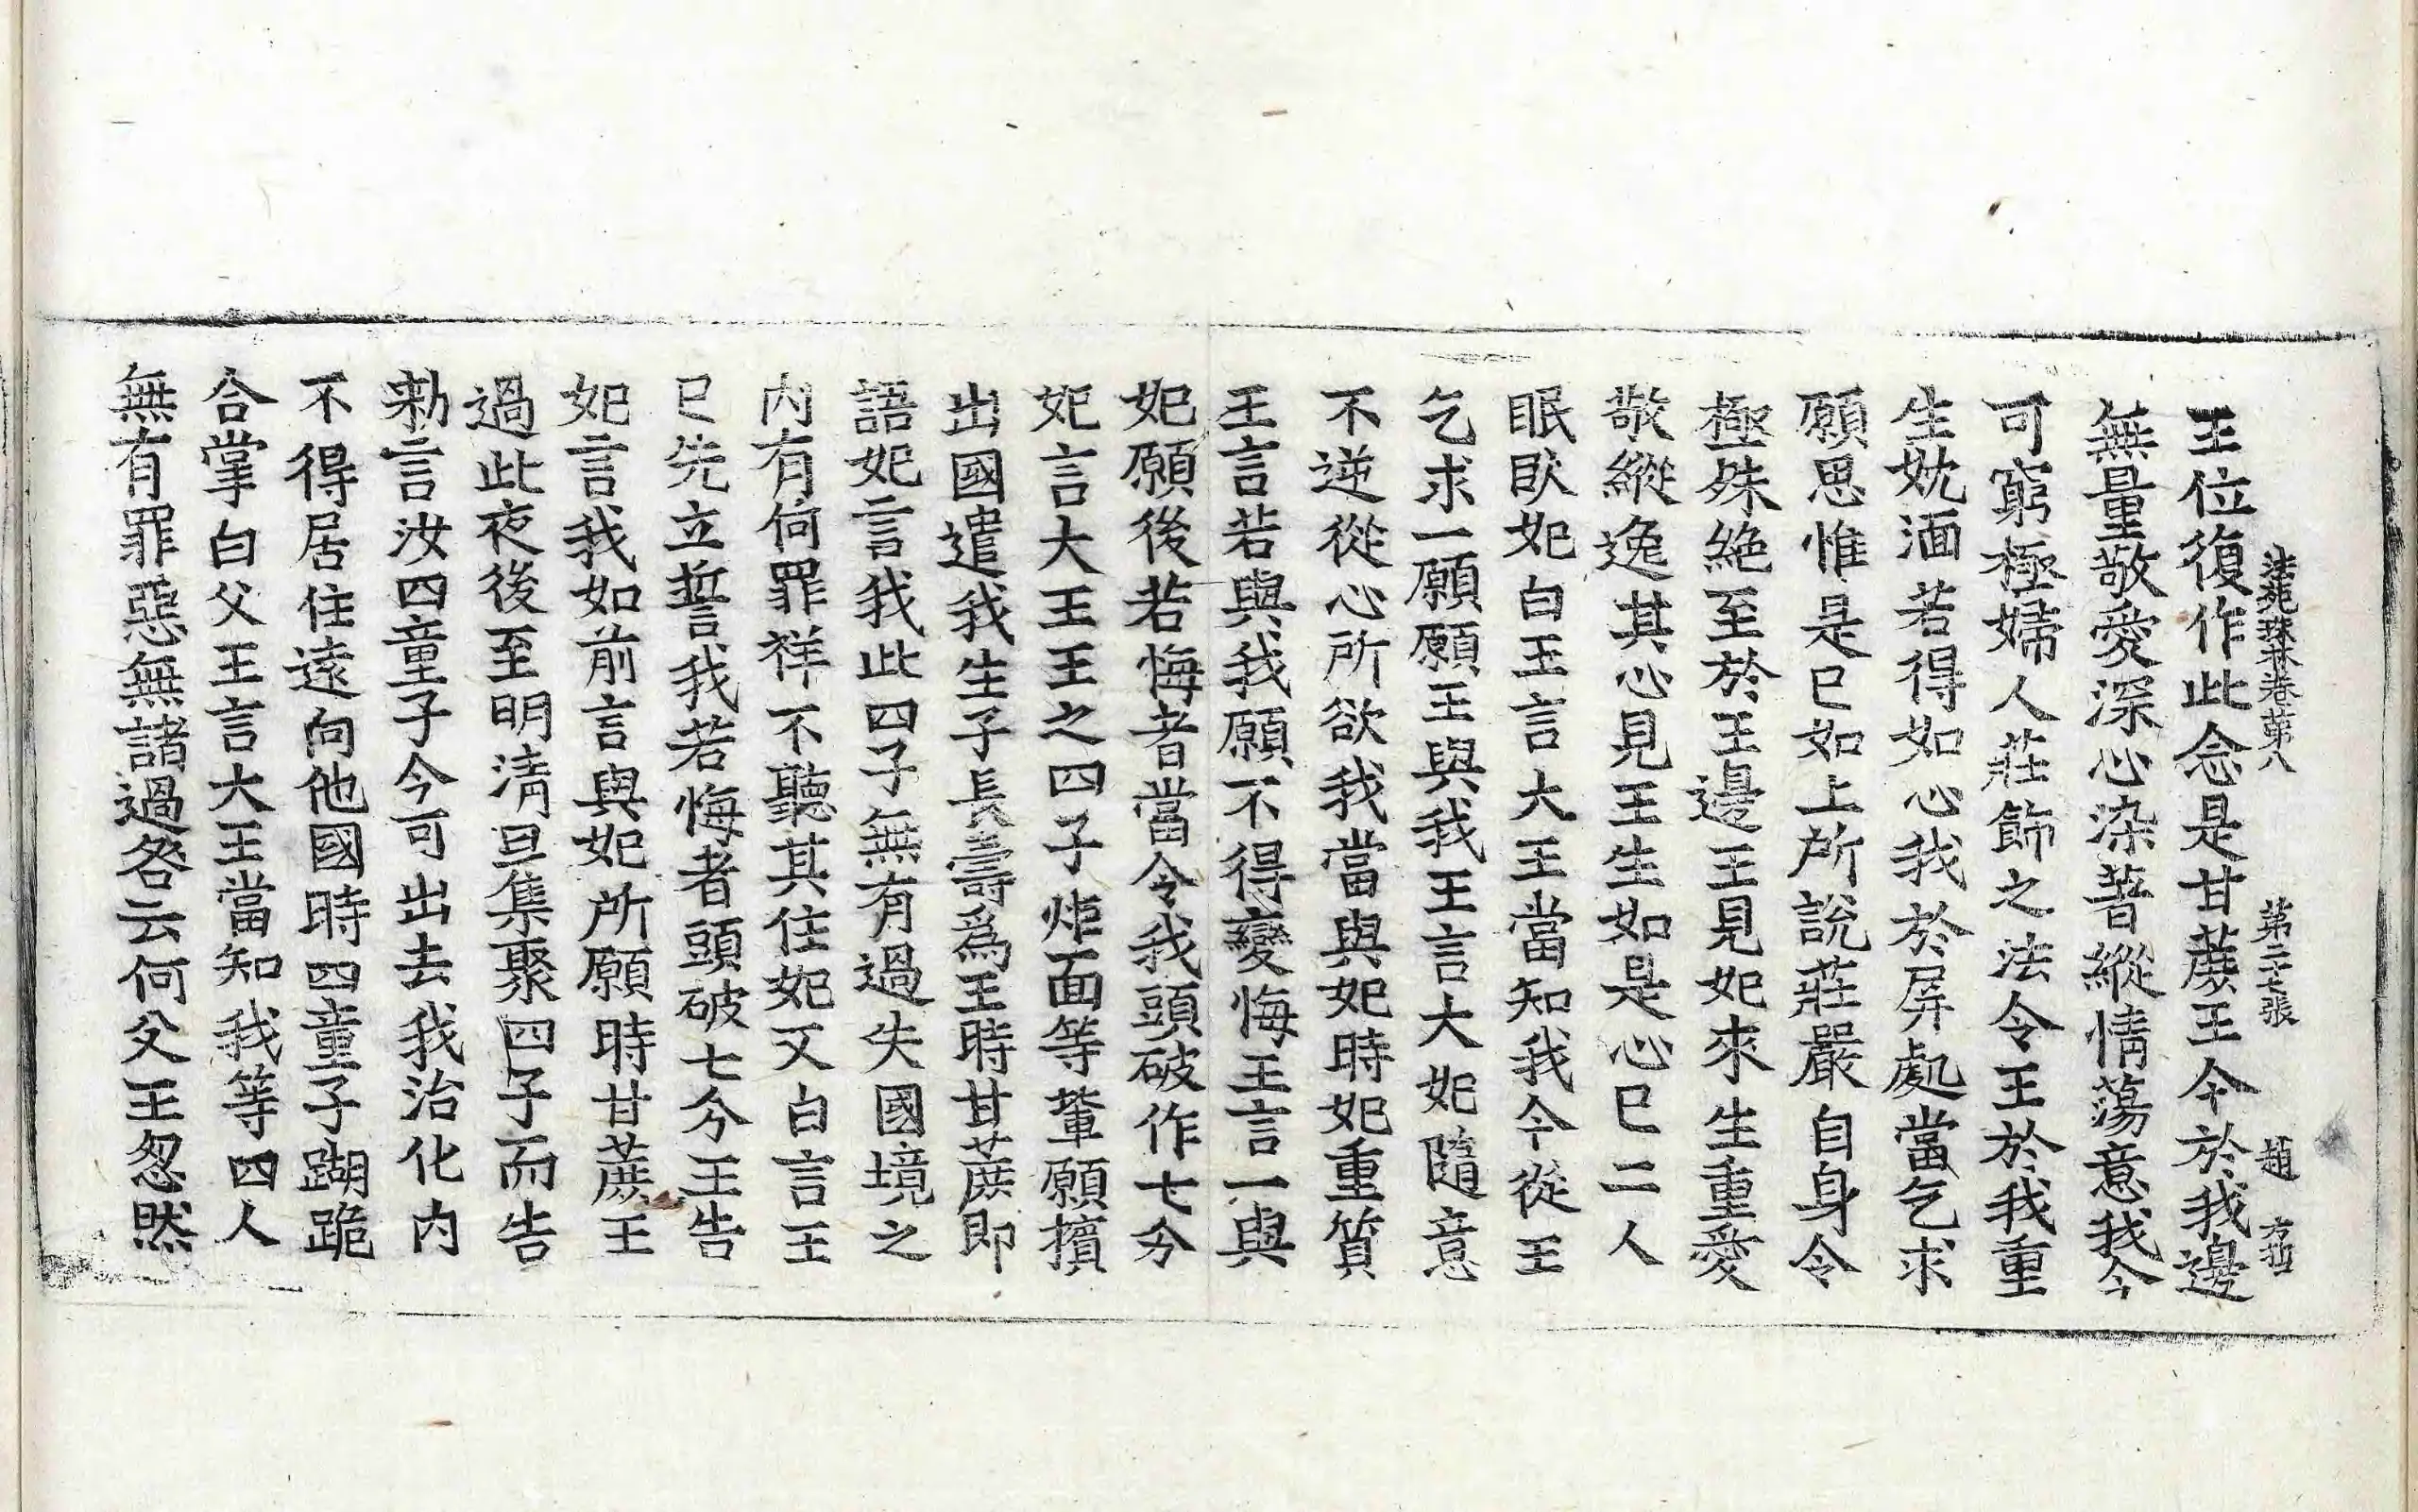 法苑珠林卷第八 第二十七張 趙
王位復作此念是甘蔗王今於我邊
無量敬愛深心染著縱情蕩意我今
可窮極婦人莊飾之法令王於我重
生妉湎若得如心我於屏處當乞求
願思惟是已如上所說莊嚴自身令
極殊絶至於王邊王見妃來生重愛
敬縱逸其心見王生如是心已二人
眠猒妃白王言大王當知我今從王
乞求一願願王與我王言大妃隨意
不逆從心所欲我當與妃時妃重質
王言若與我願不得變悔王言一與
妃願後若悔者當令我頭破作七分
妃言大王王之四子炬面等輩願擯
出國遣我生子長壽爲王時甘蔗即
語妃言我此四子無有過失國境之
內有何罪祥不聽其住妃又白言王
已先立誓我若悔者頭破七分王告
妃言我如前言與妃所願時甘蔗王
過此夜後至明清旦集聚四子而告
勑言汝四童子今可出去我治化內
不得居住遠向他國時四童子蹦跪
合掌白父王言大王當知我等四人
無有罪惡無諸過咎云何父王忽然